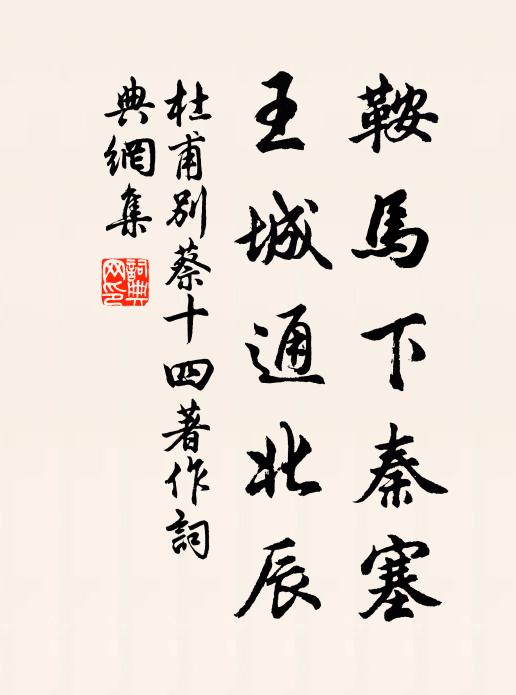 鞍馬下秦塞
王城通北辰
杜甫別蔡十四著作詞
典網集
詞典
网印